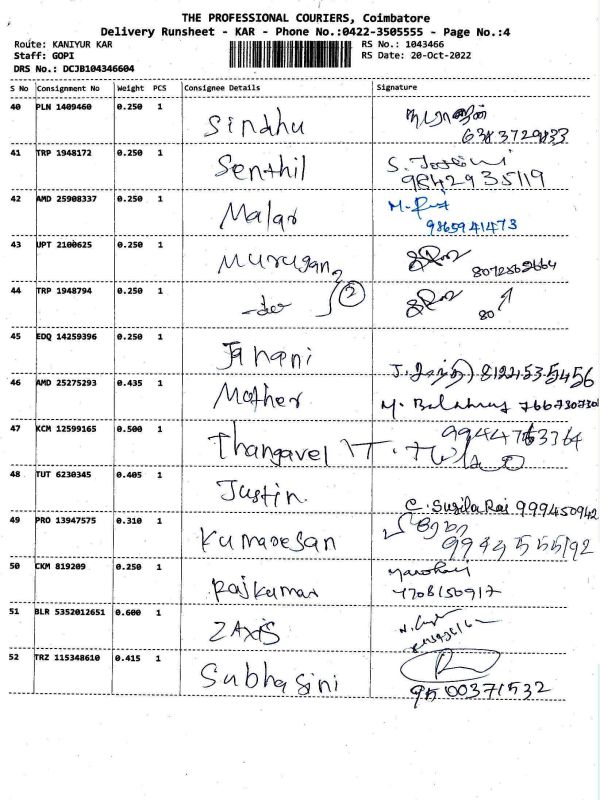 THE PROFESSIONAL COURIERS, Coimbatore
Delivery Runsheet - KAR - Phone No.:0422-3505555 - Page No.:4
Route: KANIYUR KAR RS No.: 1043466
Staff: GOPI RS Date: 20-Oct-2022
DRS No.: DCJB104346604
S No Consignment No Weight PCS Consignee Details Signature
40 PLN 1409460 0.250 1 Sindhu
41 TRP 1948172 0.250 1 Senthil S.
9842935119
42 AMD 25908337 0.250 1 Malar M.
9865941473
43 UPT 2100625 0.250 1 Murugan
8072562664
44 TRP 1948794 0.250 1 -do- 2
80
45 EDQ 14259396 0.250 1 Janani J.
46 AMD 25275293 0.435 1 Mother M.
47 KCM 12599165 0.500 1 Thangavel
48 TUT 6230345 0.405 1 Justin C. Sugila Rai 999450942
49 PRO 13947575 0.310 1 Kumaresan
50 CKM 819209 0.250 1 Rajkumar
7708150917
51 BLR 5352012651 0.600 1 ZAxis
52 TRZ 115348610 0.415 1 Subhasini
9500371532